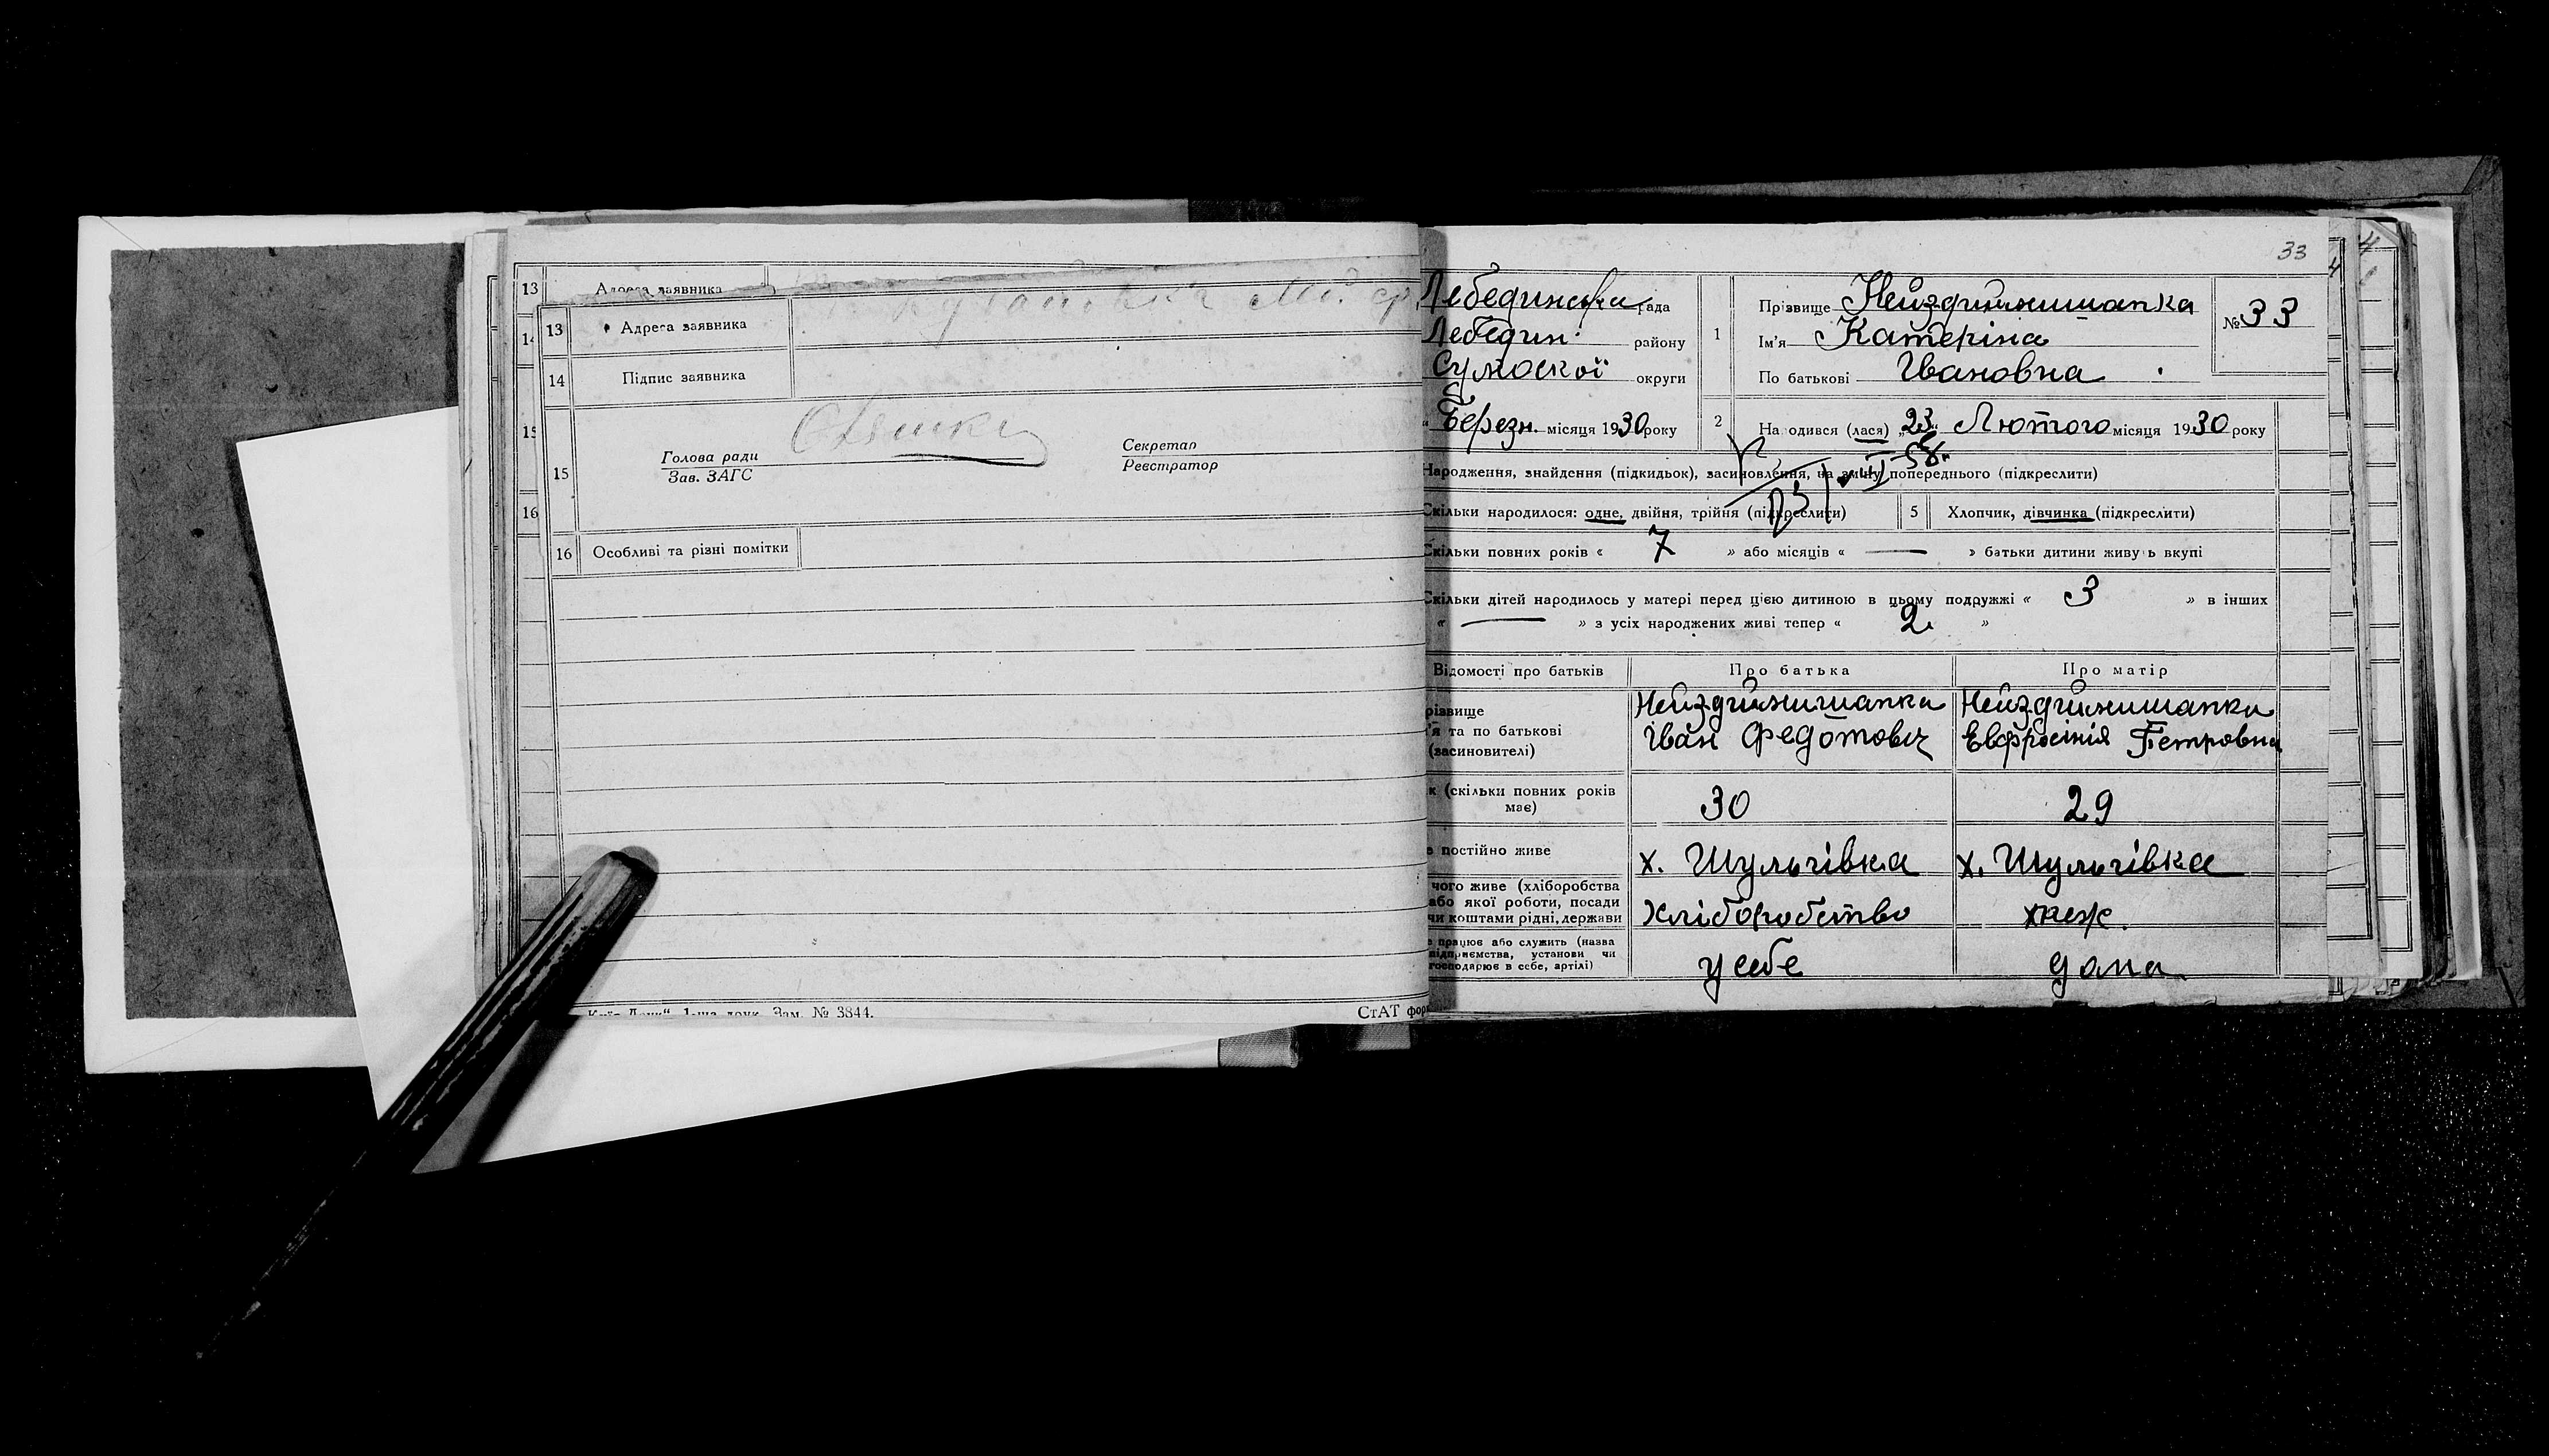 13 Адреса заявника
13 Адреса заявника
14 Підпис заявника
15
Голова ради
Зав. ЗАГС
Секретар
Реєстратор
16
16 Особливі та різні помітки
друк. Зам. № 3844.
СтАТ фор
33
Лебединська рада
Лебедин району
Сумської округи
Березн. місяця 1930 року
1
Прізвище Нейздиймишапка
Ім'я Катеріна
По батькові Івановна
№ 33
2
На одився (лася) „23“ Лютого місяця 1930 року
Народження, знайдення (підкидьок), засиновлення, на зміну попереднього (підкреслити)
Скільки народилося: одне, двійня, трійня (підкреслити)
5 Хлопчик, дівчинка (підкреслити)
Скільки повних років « 7 » або місяців « — » батьки дитини живу ь вкупі
Скільки дітей народилось у матері перед цією дитиною в цьому подружжі « 3 » в інших
« — » з усіх народжених живі тепер « 2 »
Відомості про батьків
Про батька
Про матір
різвище
'я та по батькові
(засиновителі)
Нейздиймишапка
Іван Федотович
Нейздиймишапка
Евфросінія Петровна
к (скільки повних років
має)
30
29
е постійно живе
х. Шульгівка
х. Шульгівка
чого живе (хліборобства
або якої роботи, посади
чи коштами рідні, держави
Хліборобство
е працює або служить (назва
підприємства, установи чи
господарює в себе, артілі)
у себе
дома